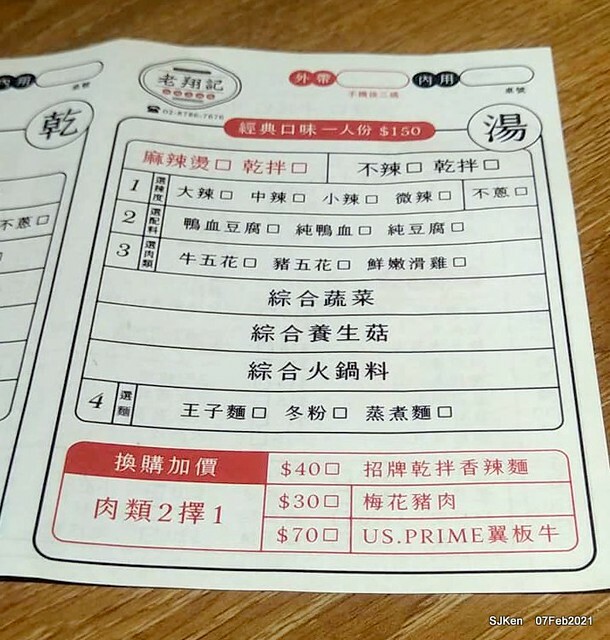 老翔記
外帶
手機後三碼
內用
桌號
02-8786-7676
乾
湯
經典口味一人份 $150
麻辣燙□ 乾拌□ 不辣□ 乾拌□
1 選辣度 大辣□ 中辣□ 小辣□ 微辣□ 不蔥□
2 選配料 鴨血豆腐□ 純鴨血□ 純豆腐□
3 選肉類 牛五花□ 豬五花□ 鮮嫩滑雞□
綜合蔬菜
綜合養生菇
綜合火鍋料
4 選麵 王子麵□ 冬粉□ 蒸煮麵□
換購加價 $40□ 招牌乾拌香辣麵
肉類2擇1 $30□ 梅花豬肉
$70□ US.PRIME翼板牛
不蔥□
SJKen 07Feb2021